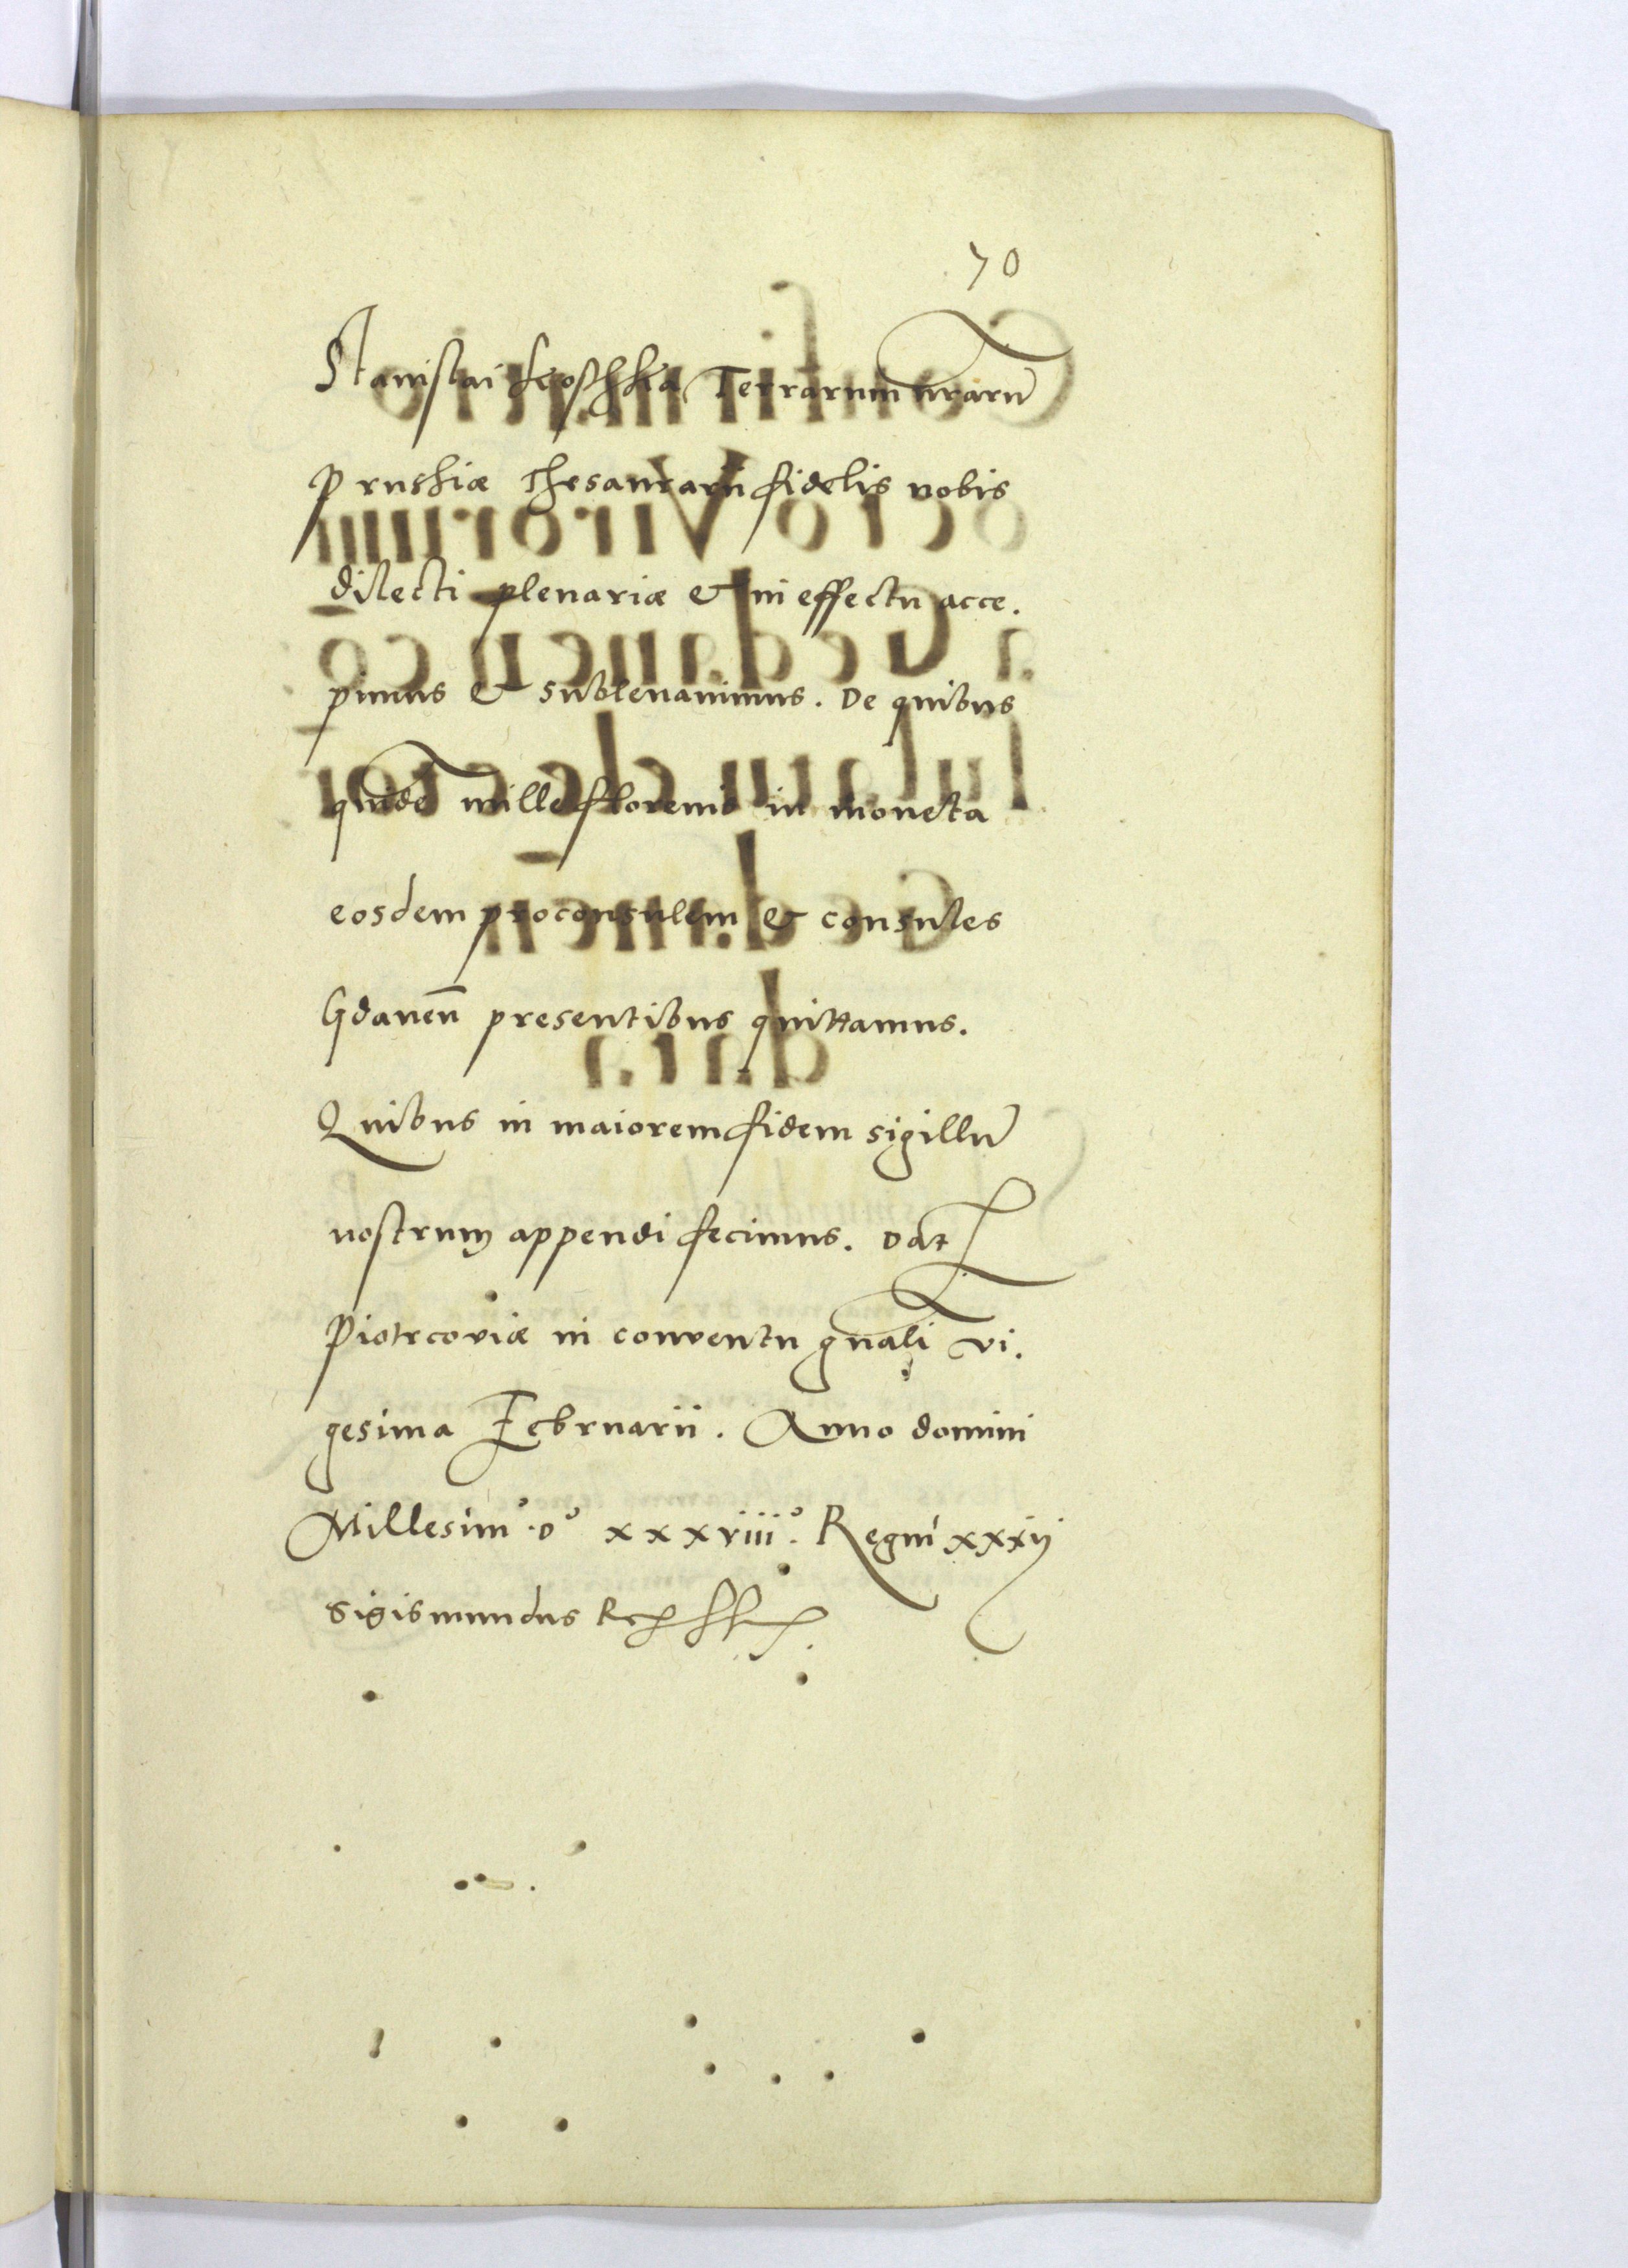 70
Stanislai Kostkka Terrarum nrarū
Prussiæ Thesaurarii fidelis nobis
dilecti plenariæ et in effectu acce.
pimus et sublevavimus. De quibus
quidē mille florenis in moneta
eosdem proconsulem et consules
Gdaneñ presentibus quittamus.
Quibus in maiorem fidem sigillū
nostrum appendi fecimus. Dat
Piotrcoviæ in conventu gnali vi.
gesima Februarii. Anno domini
Millesimº.Dº xxxviiiº. Regni xxxij
Sigismundus Rex